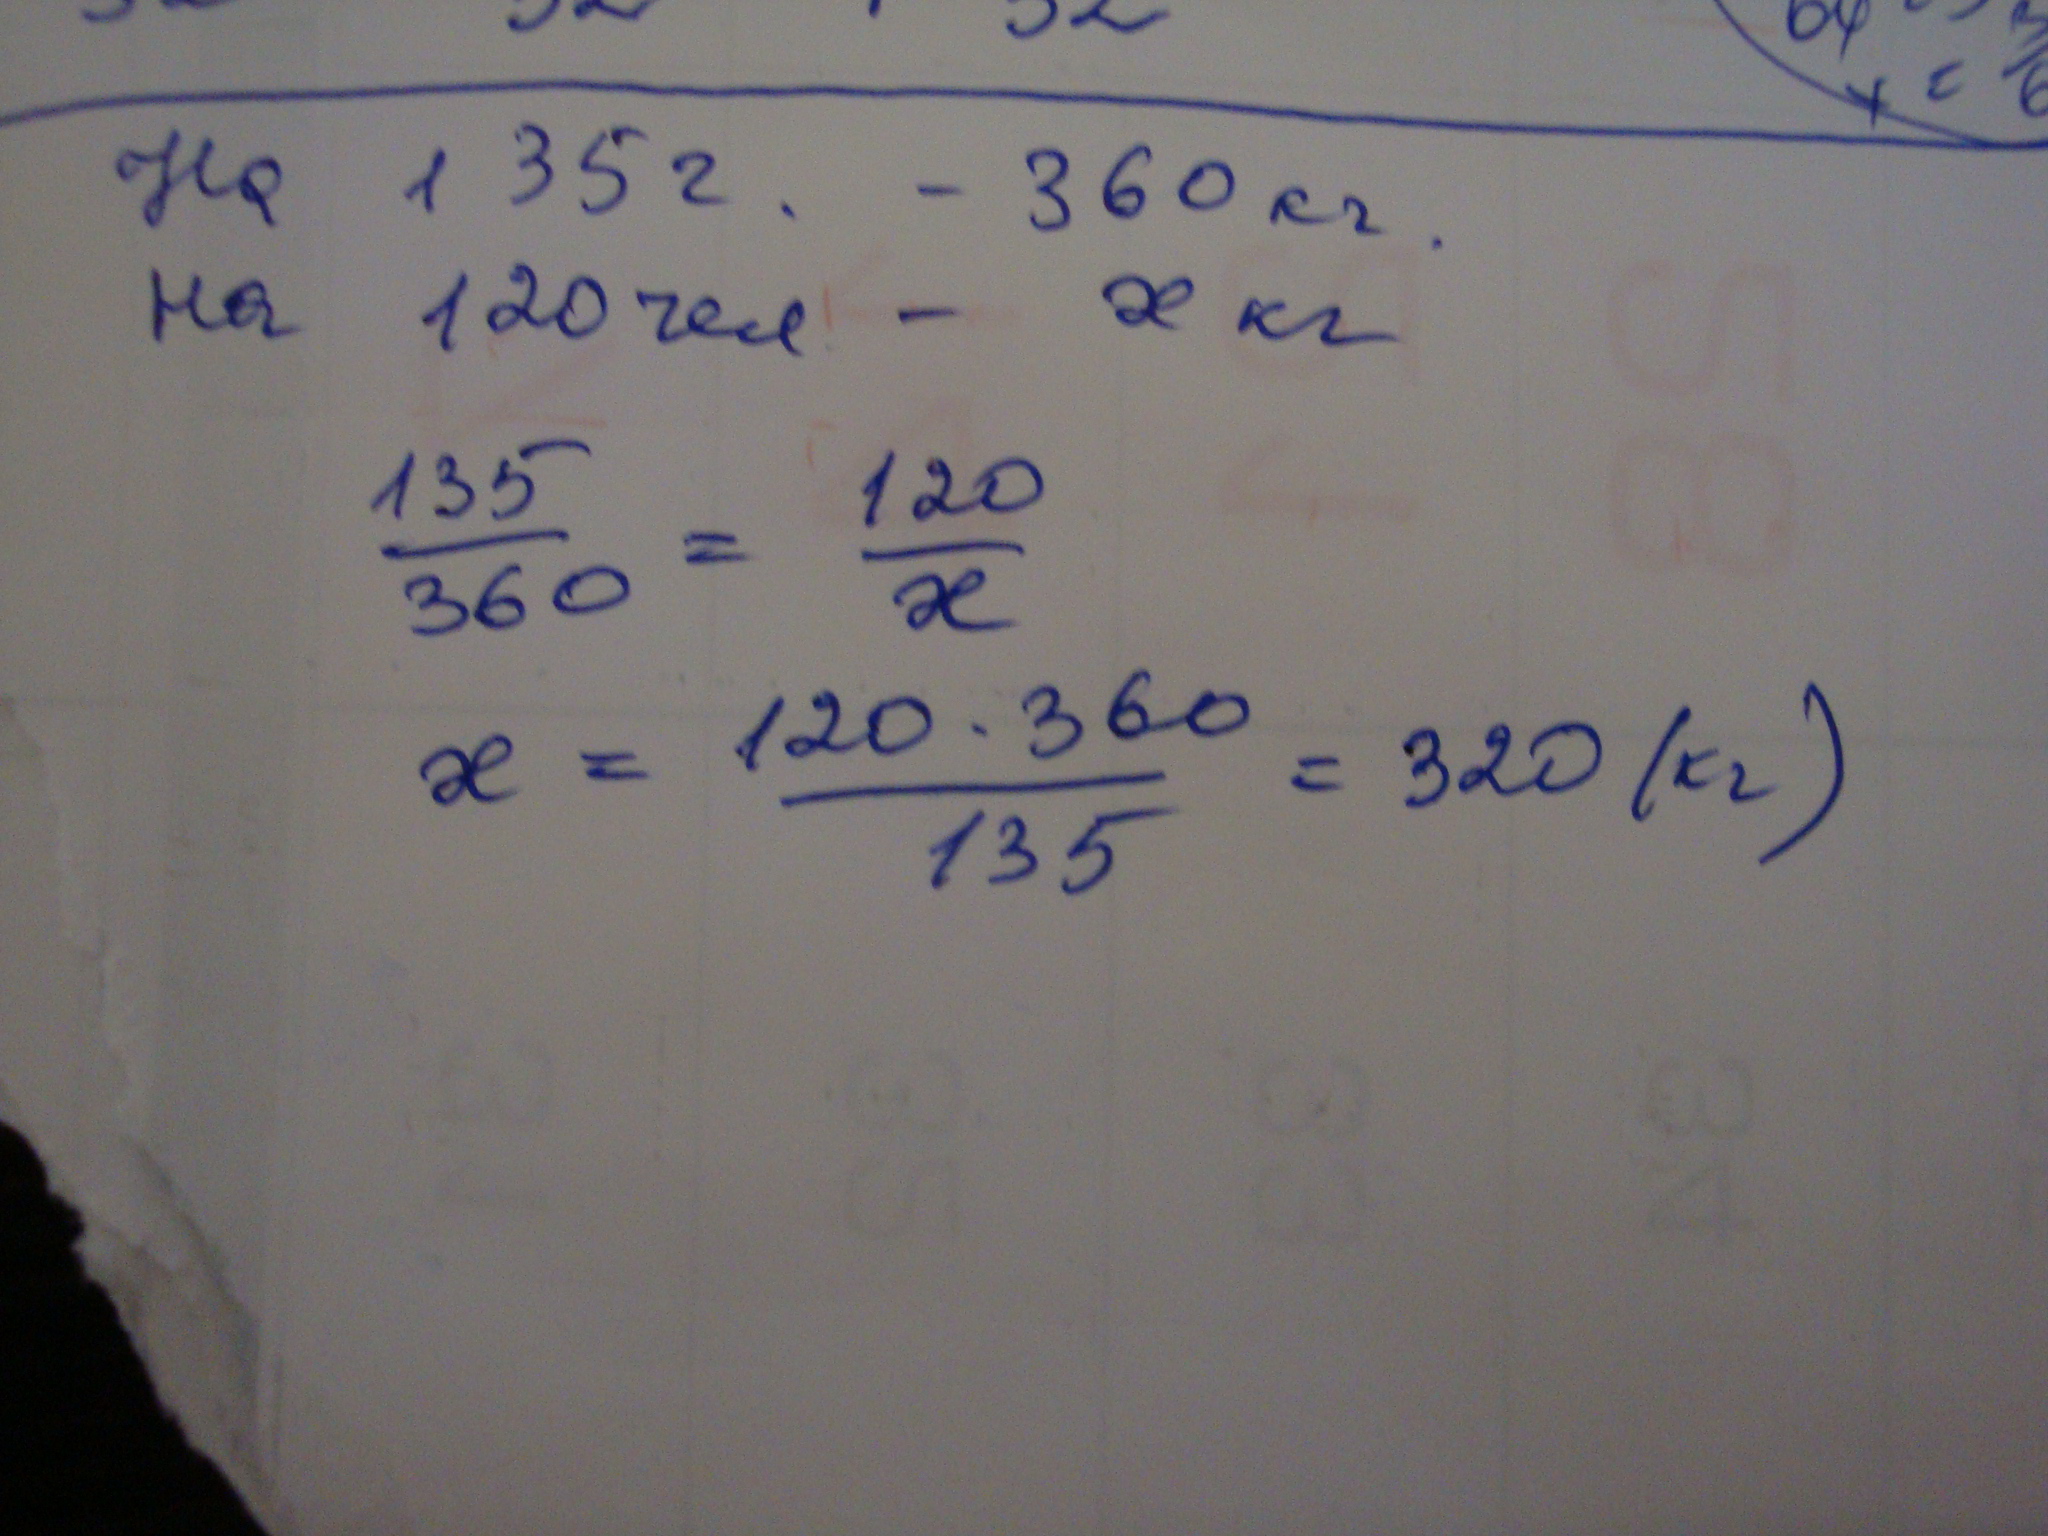 На 135 г. - 360 кг.
На 120 чел - x кг
135/360 = 120/x
x = 120 · 360/135 = 320 (кг)